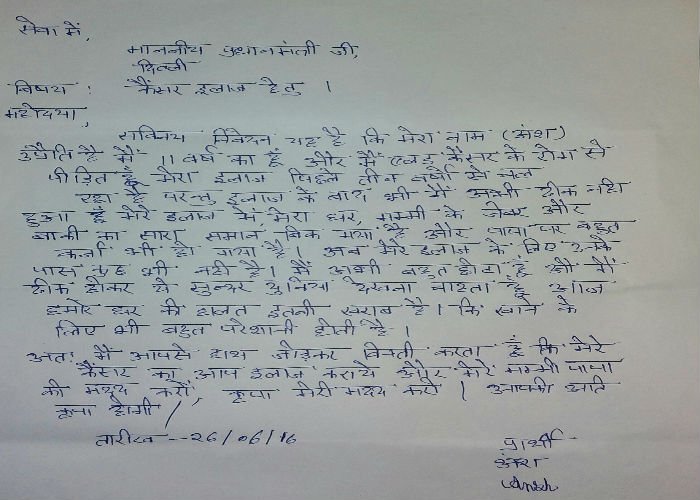 सेवा में,
माननीय प्रधानमंत्री जी,
दिल्ली
विषय : कैंसर इलाज हेतु ।
महोदया,
सविनय निवेदन यह है कि मेरा नाम (अंश)
उप्रैति है मैं 11 वर्ष का हूं और मैं ब्लड कैंसर के रोग से
पीड़ित हूं मेरा इलाज पिछले तीन वर्षो से चल
रहा है परन्तु इलाज के बाद भी मैं अभी ठीक नही
हुआ हूं मेरे इलाज में मेरा घर, मम्मी के जेवर और
बाकी का सारा समान बिक गया है और पापा पर बहुत
कर्जा भी हो गया है। अब मेरे इलाज के लिए उनके
पास कुछ भी नही है। मैं अभी बहुत छोटा हूं और मैं
ठीक होकर ये सुन्दर दुनिया देखना चाहता हूं आज
हमारे घर की हालत इतनी खराब है। कि खाने के
लिए भी बहुत परेशानी होती है ।
अतः मैं आपसे हाथ जोड़कर विनती करता हूं कि मेरे
कैंसर का आप इलाज कराये और मेरे मम्मी पापा
की मदद करों, कृपा मेरी मदद करो । आपकी अति
कृपा होगी /
तारीख -- 26/06/16
प्रार्थी -
अंश
Ansh